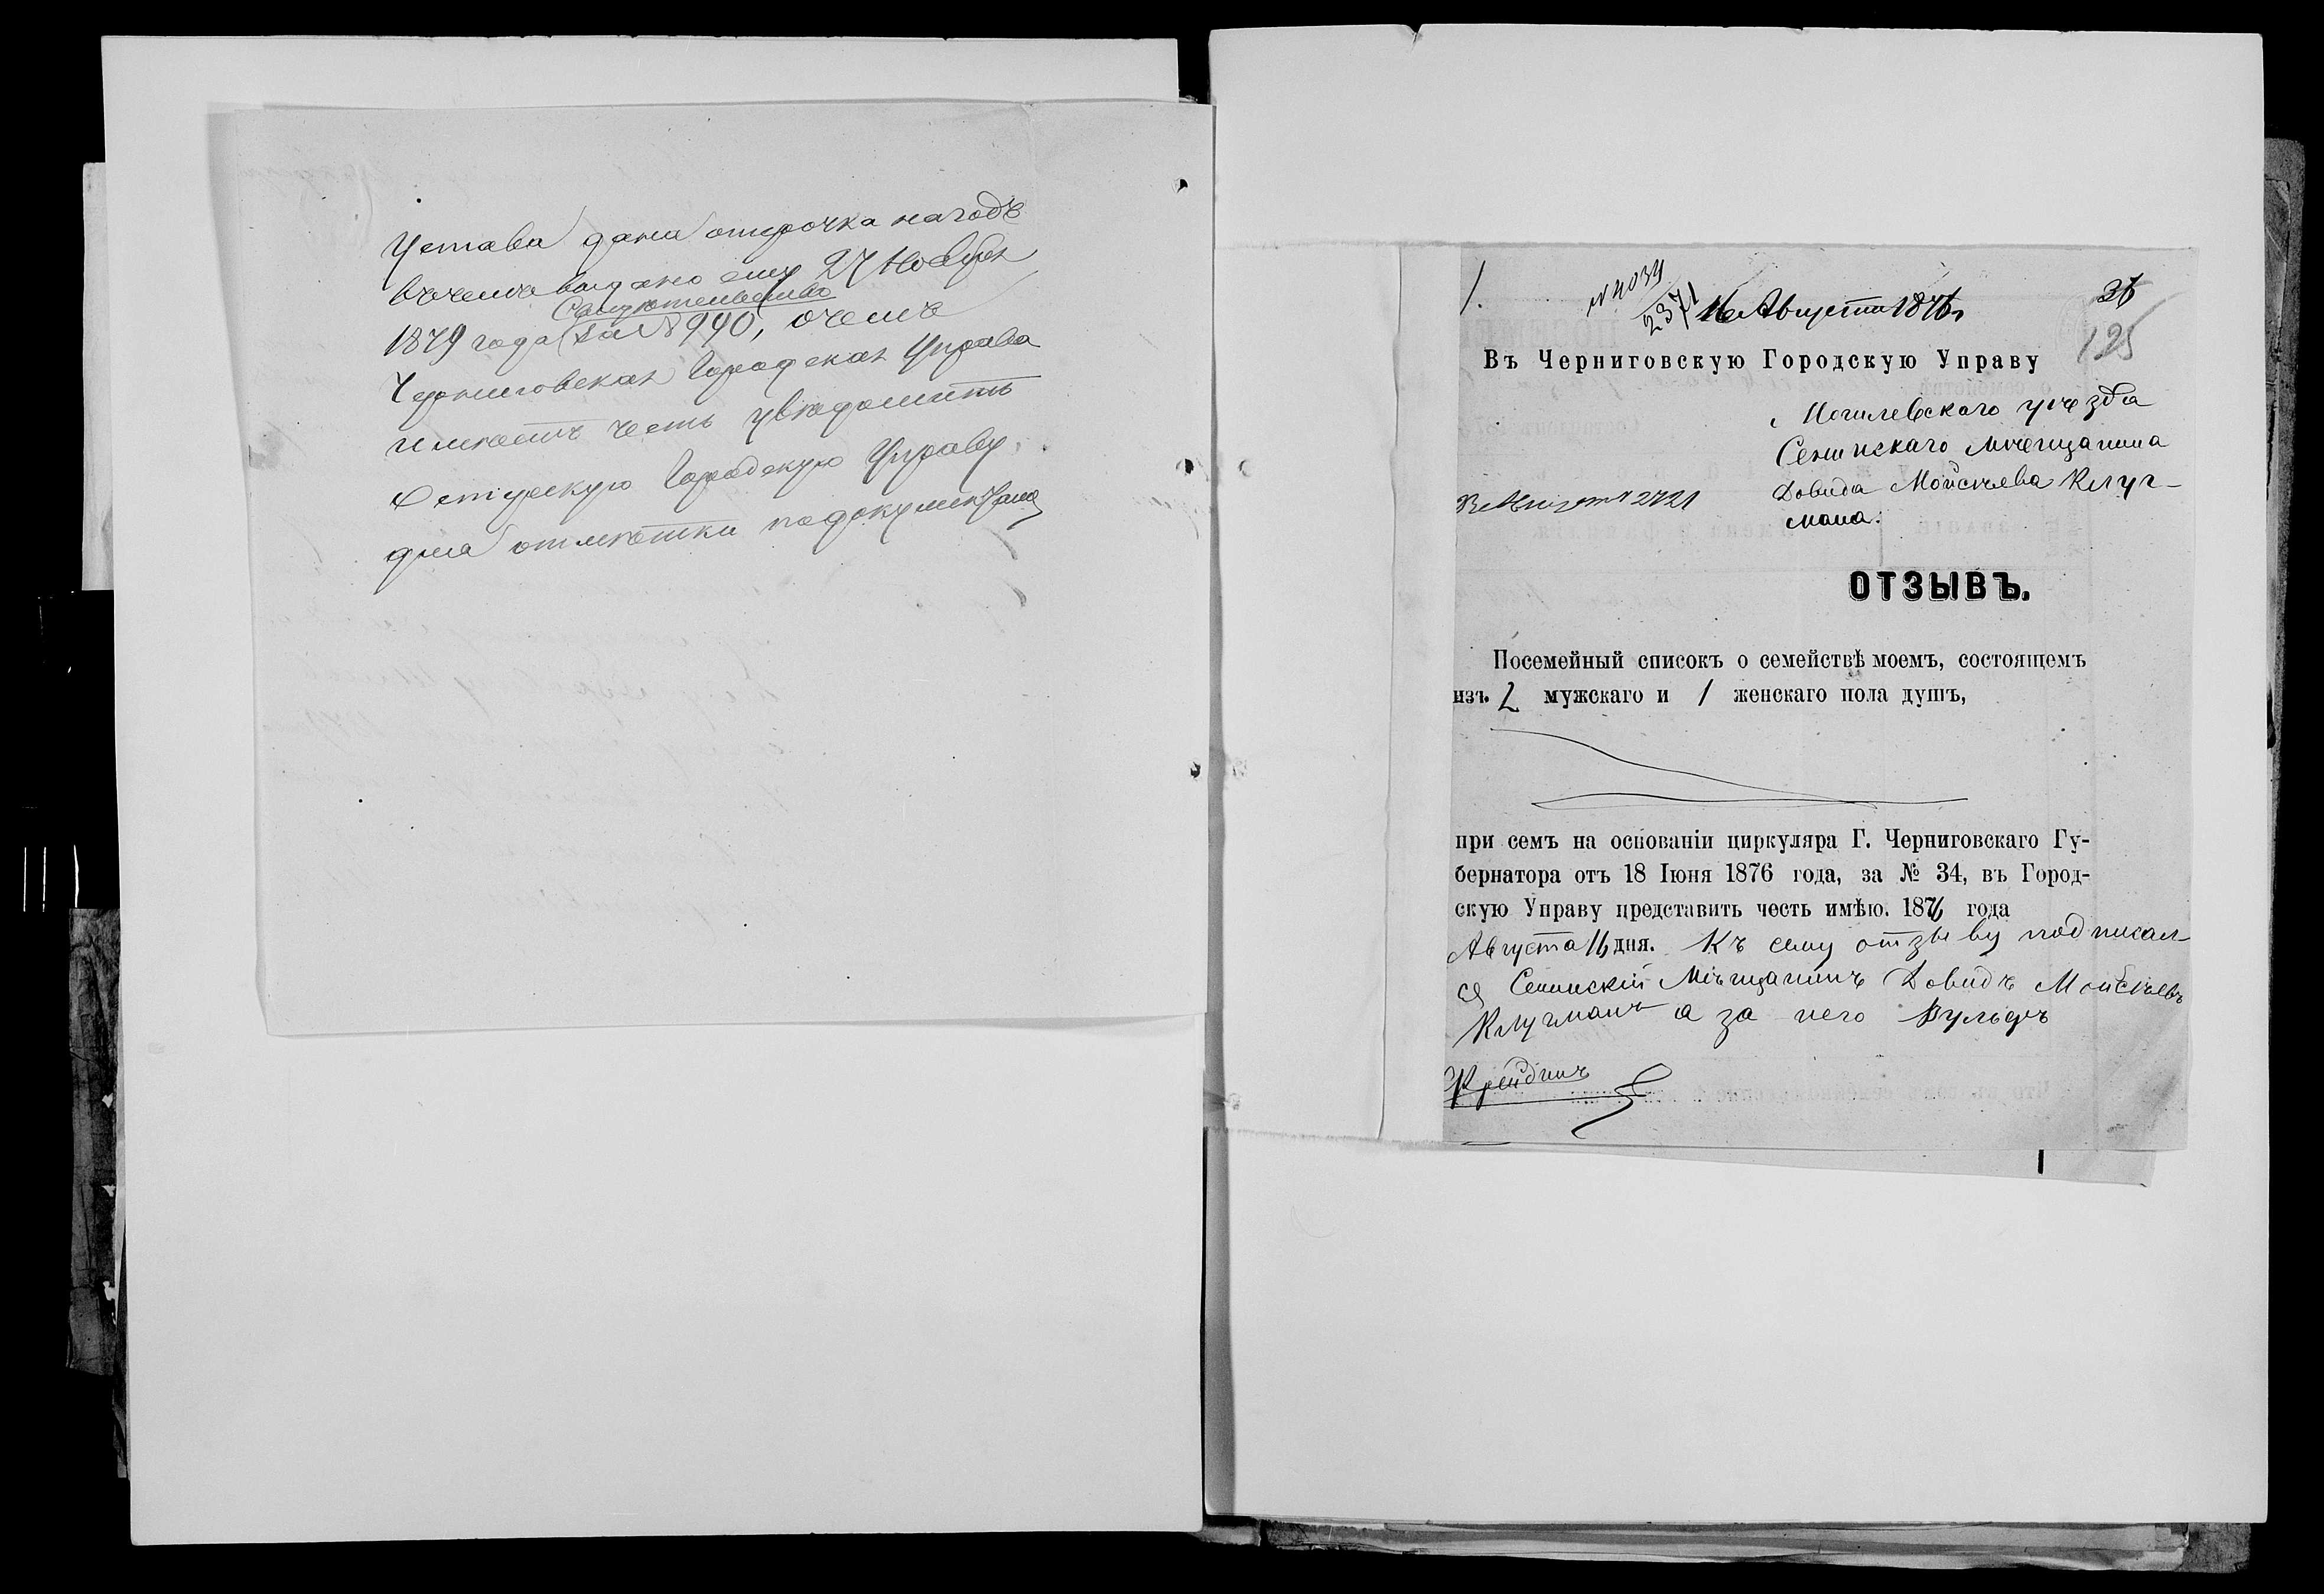 Устава дана отсрочка на годъ
въ чемъ выдано ему 27 Ноября
Свидетельство
1879 года за № 940, о чемъ
Черниговская Городская Управа
имѣетъ честь увѣдомить
Городскую Управу,
для отмѣтки по документамъ
1.
№ 4034
2371
16 Августа 1876 г
36
125
Въ Черниговскую Городскую Управу
Могилевскаго уѣзда
Сенинскаго мѣщанина
Довида Мойсѣева Клуг-
мана.
2421
ОТЗЫВЪ.
Посемейный списокъ о семействѣ моемъ, состоящемъ
изъ 2 мужскаго и 1 женскаго пола душъ,
при семъ на основаніи циркуляра Г. Черниговскаго Гу-
бернатора отъ 18 Іюня 1876 года, за № 34, въ Город-
скую Управу представить честь имѣю. 1876 года
Августа 16 дня. Къ сему отзыву подписал-
ся Сенинскій Мѣщанинъ Довидъ Мойсѣевъ
Клугманъ а за него Вульфъ
Крейдинъ